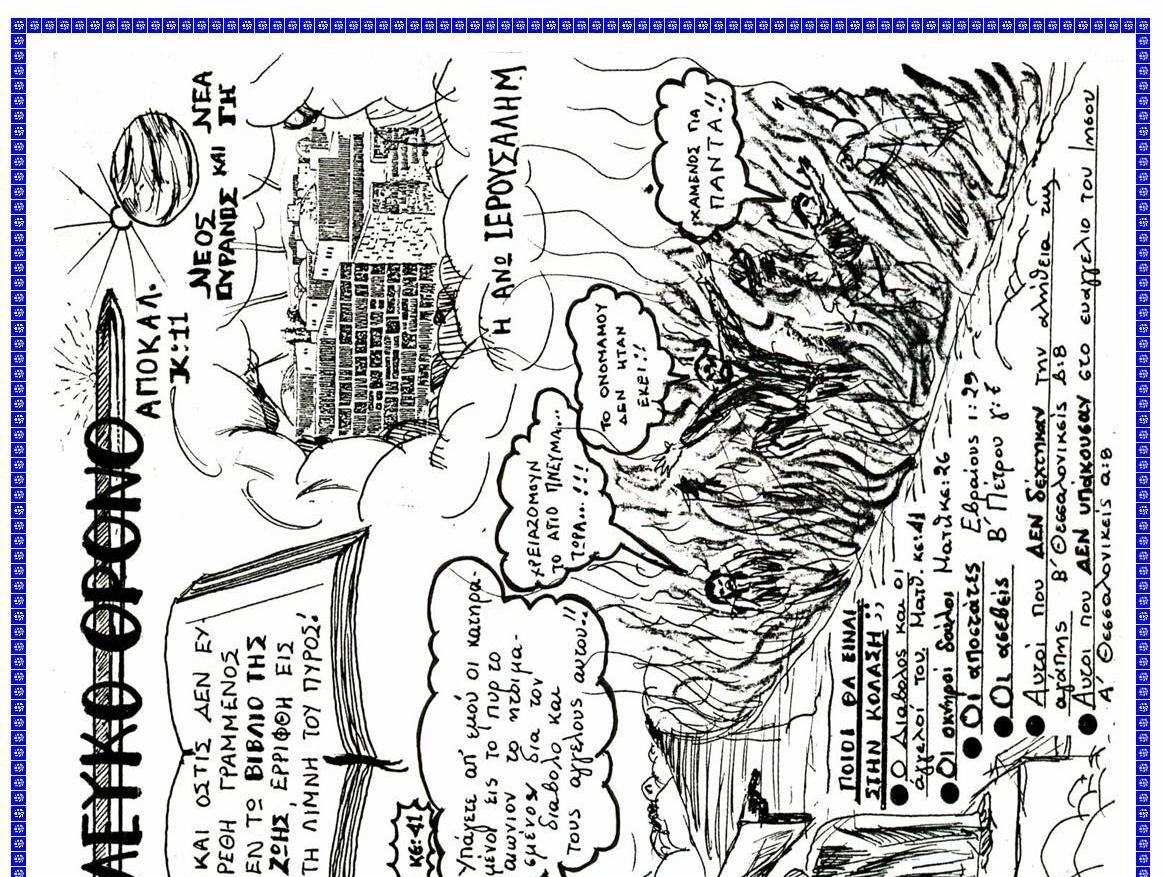 ΛΕΥΚΟ ΘΡΟΝΟ
ΑΠΟΚΑΛ.
Κ:11
ΝΕΟΣ ΝΕΑ
ΟΥΡΑΝΟΣ ΚΑΙ ΓΗ
Η ΑΝΩ ΙΕΡΟΥΣΑΛΗΜ
ΚΑΙ ΟΣΤΙΣ ΔΕΝ ΕΥ-
ΡΕΘΗ ΓΡΑΜΜΕΝΟΣ
ΕΝ ΤΩ ΒΙΒΛΙΟ ΤΗΣ
ΖΩΗΣ, ΕΡΡΙΦΘΗ ΕΙΣ
ΤΗ ΛΙΜΝΗ ΤΟΥ ΠΥΡΟΣ!
ΚΕ:41
Υπάγετε απ' εμού οι κατηρα-
μένοι εις το πυρ το
αιώνιον το ητοιμα-
σμένον δια τον
διάβολο και
τους αγγέλους αυτου!!
ΧΡΕΙΑΖΟΜΟΥΝ
ΤΟ ΑΓΙΟ ΠΝΕΥΜΑ...
ΤΩΡΑ...!!!
ΤΟ ΟΝΟΜΑΜΟΥ
ΔΕΝ ΗΤΑΝ
ΕΚΕΙ!!
ΧΑΜΕΝΟΣ ΓΙΑ
ΠΑΝΤΑ!!
ΠΟΙΟΙ ΘΑ ΕΙΝΑΙ
ΣΤΗΝ ΚΟΛΑΣΗ;;
● Ο Διάβολος και οι
αγγελοί του. Ματθ. κε:41
● Οι οκνηροί δούλοι Ματθ κε:26
● Οι αποστάτες Εβραίους 1:29
● Οι ασεβείς Β' Πέτρου γ:ζ
● Αυτοί που ΔΕΝ δέχτηκαν την αλήθεια της
αγάπης Β' Θεσσαλονικείς Δ:8
● Αυτοι που ΔΕΝ υπάκουσαν στο ευαγγέλιο του Ιησου
Α' Θεσσαλονικείς α:8